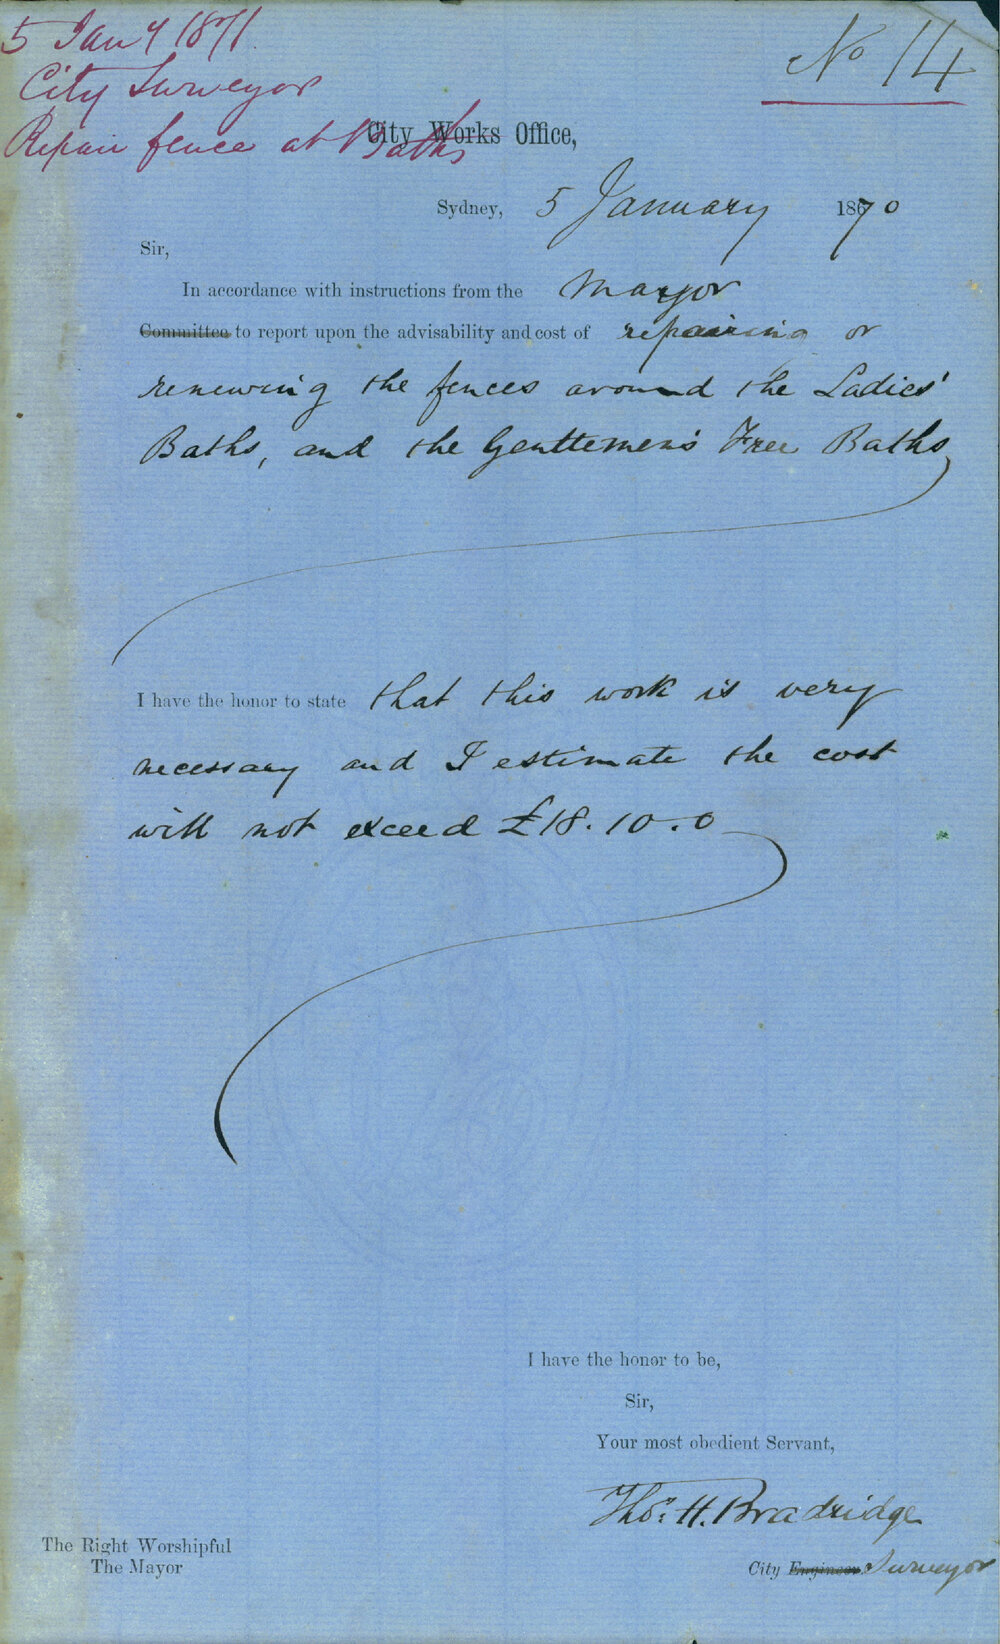 5 Jany 1871
City Surveyor
Repair fence at Baths
No 14
City Works Office,
Sydney, 5 January 1870
Sir,
In accordance with instructions from the Mayor
Committee to report upon the advisability and cost of repairing or
renewing the fences around the Ladies'
Baths, and the Genttemen's Free Baths
I have the honor to state that this work is very
necessary and I estimate the cost
will not exceed £18.10.0
I have the honor to be,
Sir,
Your most obedient Servant,
Thos. H. Bradridge
The Right Worshipful
The Mayor
City Engineer Surveyor